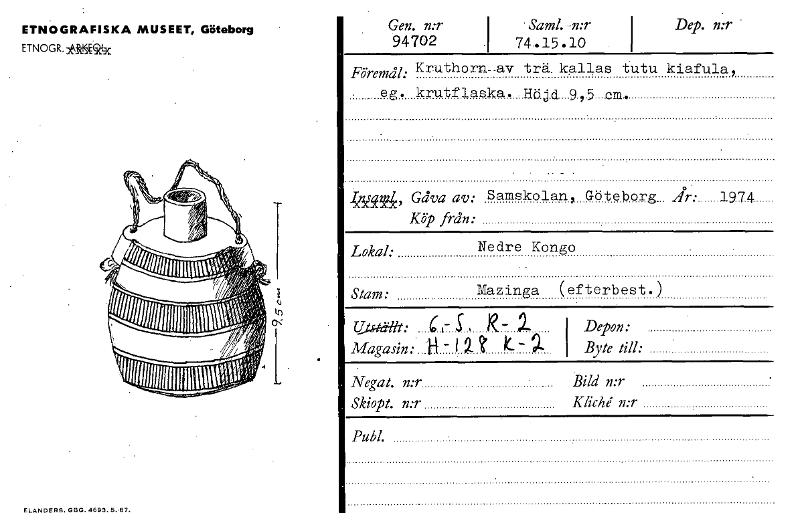 ETNOGRAFISKA MUSEET, Göteborg
ETNOGR. ARKEOL.
9,5 cm
ELANDERS, GBG. 4693. 5. 67.
Gen. n:r Saml. n:r Dep. n:r
94702 74.15.10
Föremål: Kruthorn av trä kallas tutu kiafula,
eg. krutflaska. Höjd 9,5 cm.
Insaml, Gåva av: Samskolan, Göteborg År: 1974
Köp från:
Lokal: Nedre Kongo
Stam: Mazinga (efterbest.)
Utställt: 6.-5. R-2 Depon:
Magasin: H-128 K-2 Byte till:
Negat. n:r Bild n:r
Skiopt. n:r Kliché n:r
Publ.